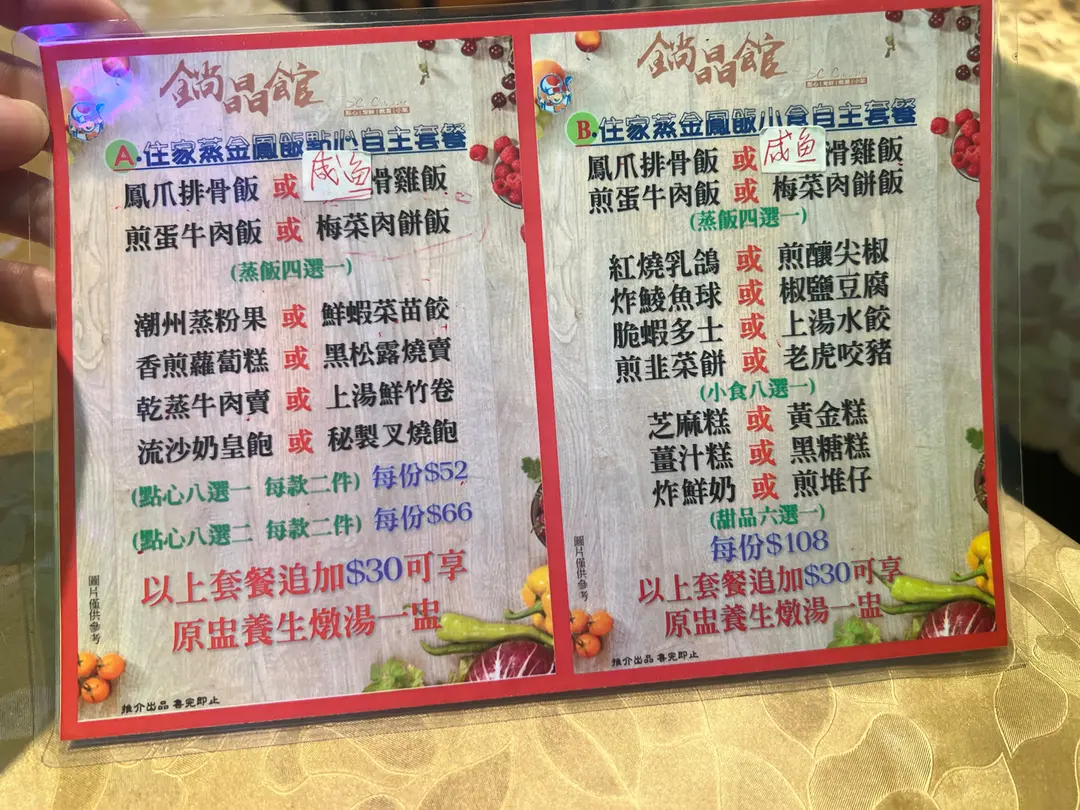 鐫晶館
點心
A.住家蒸金鳳飯點心自主套餐
鳳爪排骨飯 或 咸鱼滑雞飯
煎蛋牛肉飯 或 梅菜肉餅飯
(蒸飯四選一)
潮州蒸粉果 或 鮮蝦菜苗餃
香煎蘿蔔糕 或 黑松露燒賣
乾蒸牛肉賣 或 上湯鮮竹卷
流沙奶皇飽 或 秘製叉燒飽
(點心八選一 每款二件) 每份$52
(點心八選二 每款二件) 每份$66
以上套餐追加$30可享
原盅養生燉湯一盅
圖片僅供參考
推介出品 售完即止
晶館
B.住家蒸金鳳飯小食自主套餐
鳳爪排骨飯 或 咸鱼滑雞飯
煎蛋牛肉飯 或 梅菜肉餅飯
(蒸飯四選一)
紅燒乳鴿 或 煎釀尖椒
炸鯪魚球 或 椒鹽豆腐
脆蝦多士 或 上湯水餃
煎韭菜餅 或 老虎咬豬
(小食八選一)
芝麻糕 或 黃金糕
薑汁糕 或 黑糖糕
炸鮮奶 或 煎堆仔
(甜品六選一)
每份$108
以上套餐追加$30可享
原盅養生燉湯一盅
圖片僅供參考
推介出品 售完即止